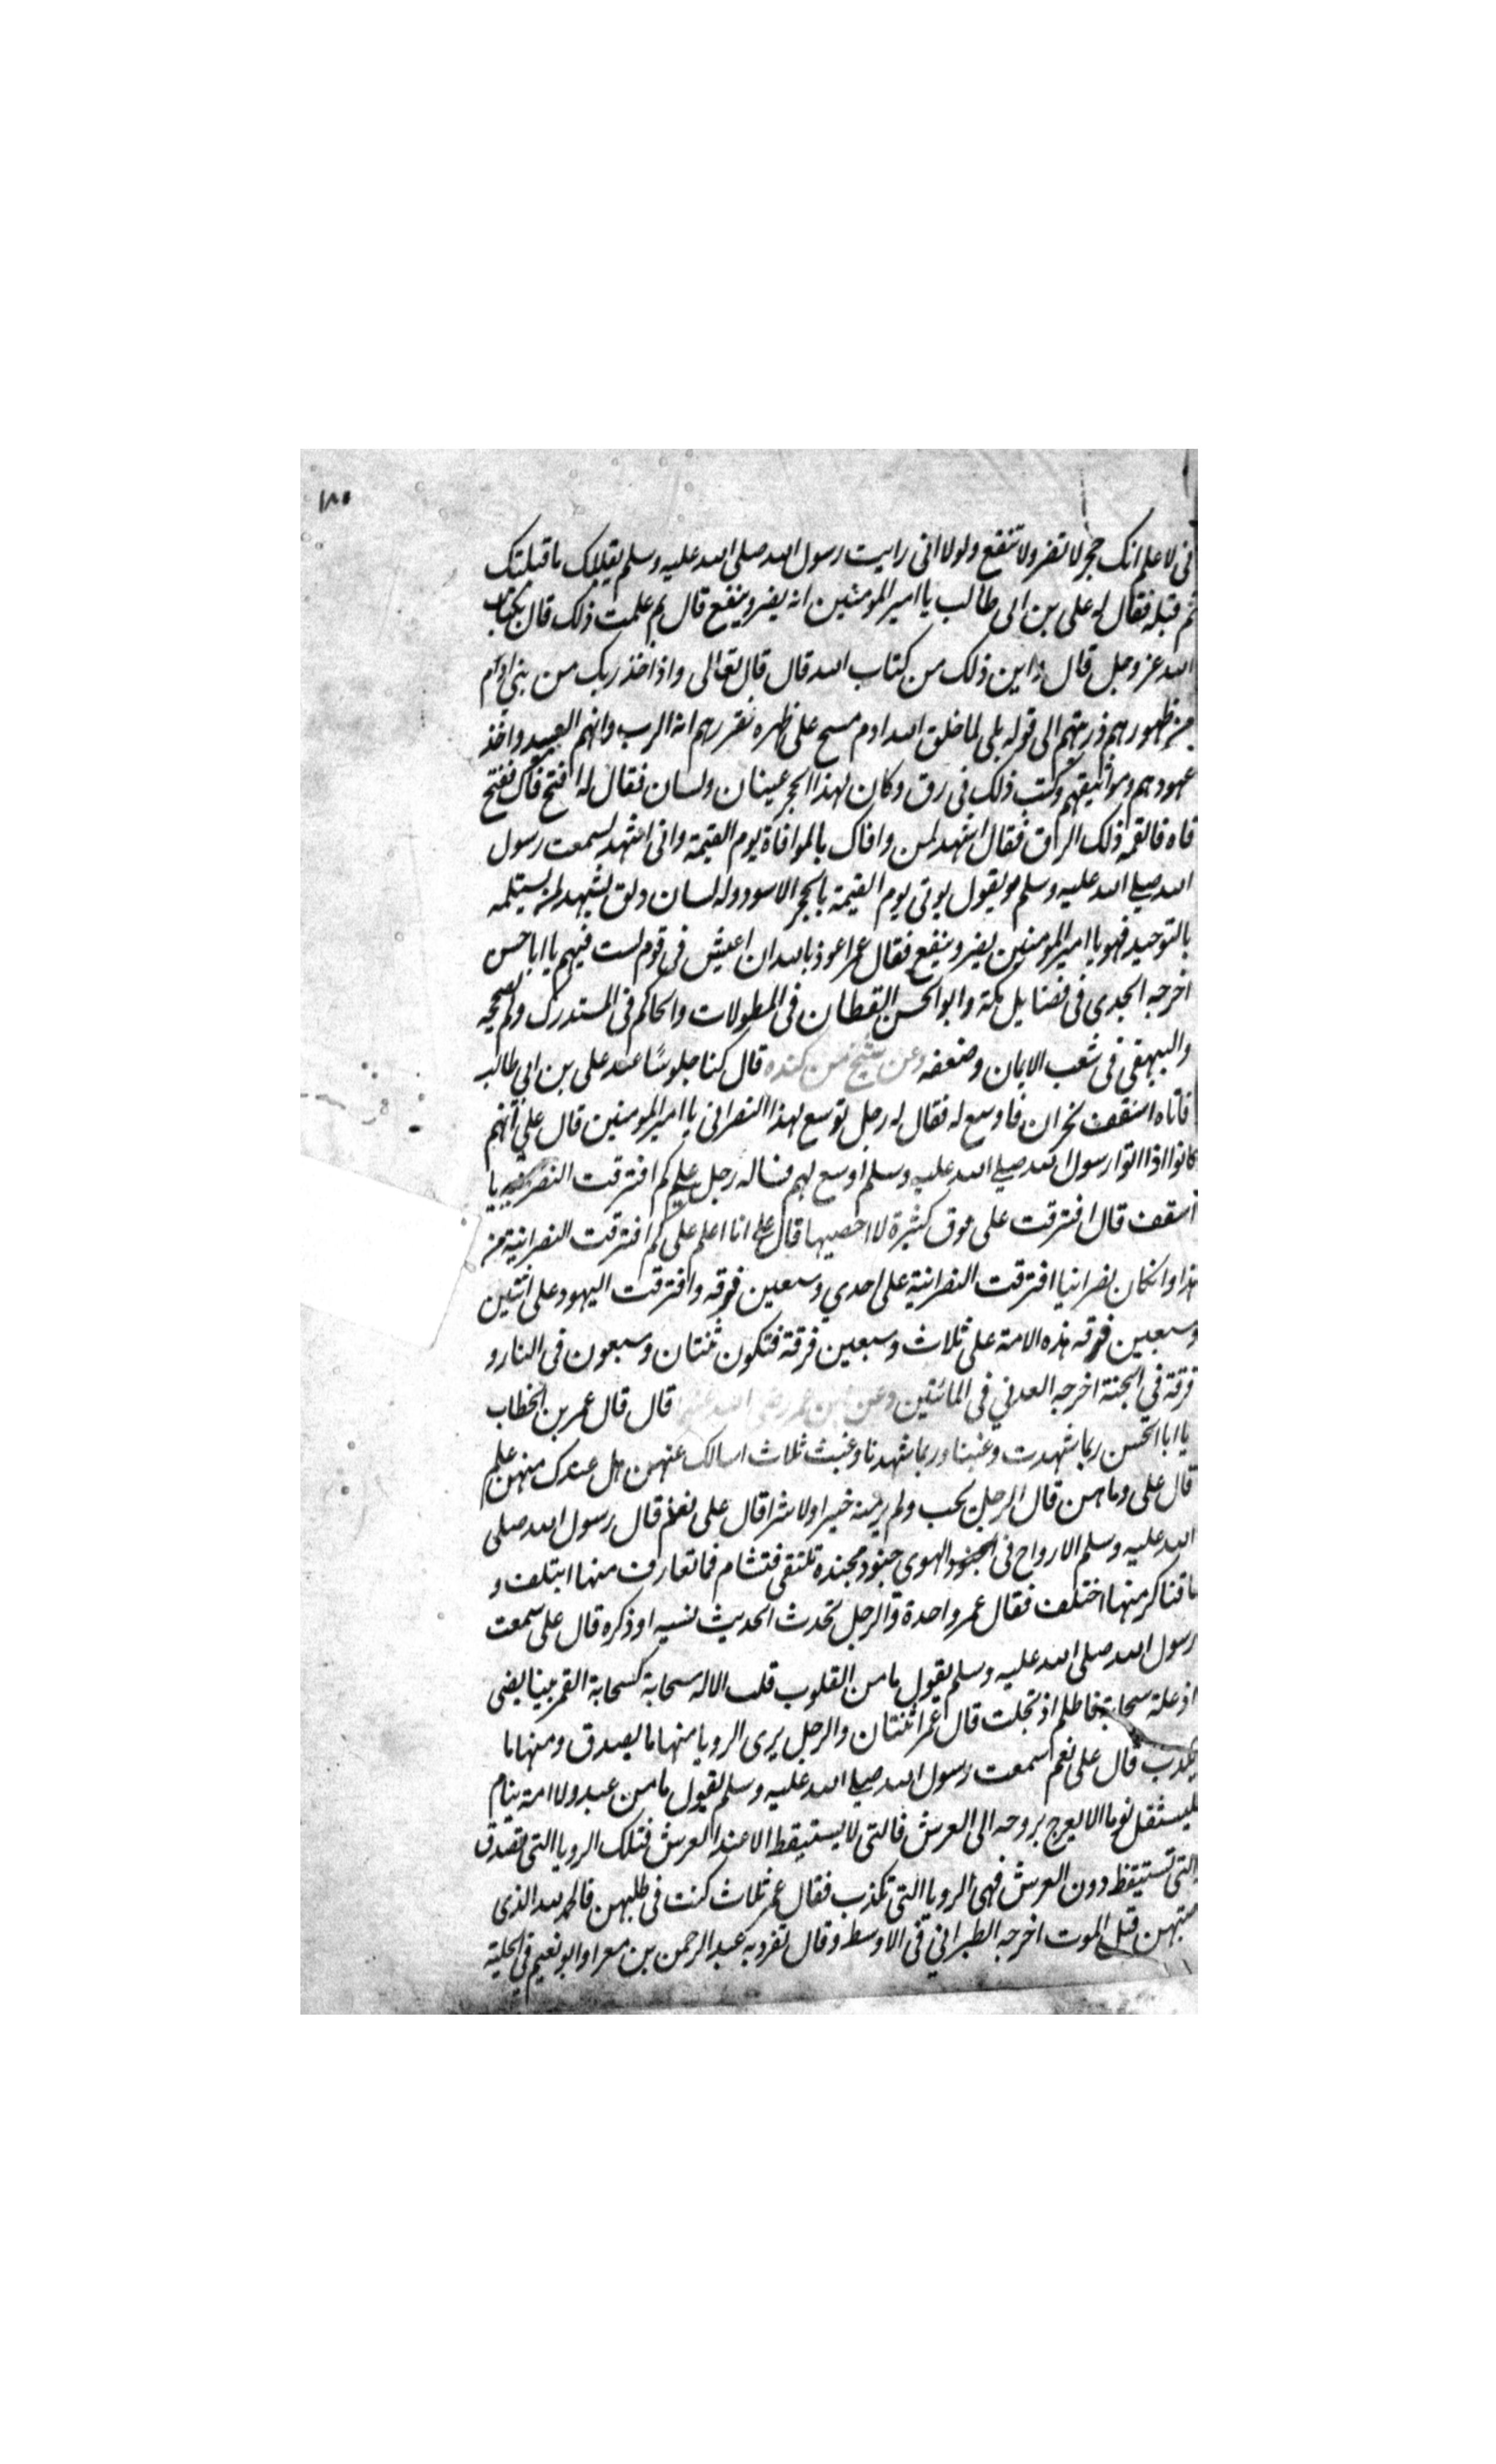 ١٨٥
انى لاعلم انك حجر لا تضر ولا تنفع ولولا انى رايت رسول الله صلى الله عليه وسلم يقبلك ما قبلتك
ثم قبله فقال له على بن ابى طالب يا امير المومنين انه يضر وينفع قال بم علمت ذلك قال بكتاب
الله عز وجل قال واين ذلك من كتاب الله قال قال تعالى واذ اخذ ربك من بنى ادم
من ظهورهم ذريتهم الى قوله بلى لما خلق الله ادم مسح على ظهره فقررهم انه الرب وانهم العبيد واخذ
عهودهم ومواثيقهم وكتب ذلك فى رق وكان لهذا الحجر عينان ولسان فقال له افتح فاك ففتح
فاه فالقمه ذلك الرق فقال اشهد لمن وافاك بالموافاة يوم القيمة وانى اشهد لسمعت رسول
الله صلى الله عليه وسلم يقول يوتى يوم القيمة بالحجر الاسود وله لسان دلق يشهد لمن يستلمه
بالتوحيد فهو يا امير المومنين يضر وينفع فقال عمر اعوذ بالله ان اعيش فى قوم لست فيهم يا ابا حسن
اخرجه الجندى فى فضايل مكة وابو الحسن القطان فى المطولات والحاكم فى المستدرك ولم يصححه
والبيهقى فى شعب الايمان وضعفه وعن شيخ من كنده قال كنا جلوسًا عند على بن ابى طالب
فاتاه اسقف نجران فاوسع له فقال له رجل توسع لهذا النصرانى يا امير المومنين قال على انهم
كانوا اذا اتوا رسول الله صلى الله عليه وسلم اوسع لهم فساله رجل على كم افترقت النصرانية يا
اسقف قال افترقت على فرق كثيرة لا احصيها قال على انا اعلم على كم افترقت النصرانية من
هذا وان كان نصرانيا افترقت النصرانية على احدى وسبعين فرقه وافترقت اليهود على اثنتين
وسبعين فرقه هذه الامة على ثلاث وسبعين فرقة فتكون ثنتان وسبعون فى النار و
فرقة فى الجنة اخرجه العدني فى المائتين وعن ابن عمر رضى الله عنهما قال قال عمر بن الخطاب
يا ابا الحسن ربما شهدت وغبنا وربما شهدنا وغبت ثلاث اسالك عنهن هل عندك منهن علم
قال على وما هن قال الرجل يحب ولم ير منه خيرا ولا شرا قال على نعم قال رسول الله صلى
الله عليه وسلم الارواح فى الهوى جنود مجنده تلتقى فتشام فما تعارف منها ايتلف و
ما تناكر منها اختلف فقال عمر واحدة والرجل تحدث الحديث نسيه او ذكره قال على سمعت
رسول الله صلى الله عليه وسلم يقول ما من القلوب قلب الا له سحابة كسحابة القمر بينا يضى
اذ علته سحابة فاظلم اذ تجلت قال عمر اثنتان والرجل يرى الرويا منها ما يصدق ومنها ما
يكذب قال على نعم سمعت رسول الله صلى الله عليه وسلم يقول ما من عبد ولا امة ينام
فيستثقل نوما الا يعرج بروحه الى العرش فالتى لا يستيقظ الا عند العرش فتلك الرويا التى تصدق
والتى تستيقظ دون العرش فهى الرويا التى تكذب فقال عمر ثلاث كنت فى طلبهن فالحمد لله الذى
اصبتهن قبل الموت اخرجه الطبرانى فى الاوسط وقال تفرد به عبد الرحمن بن معرا وابو نعيم فى الحلية